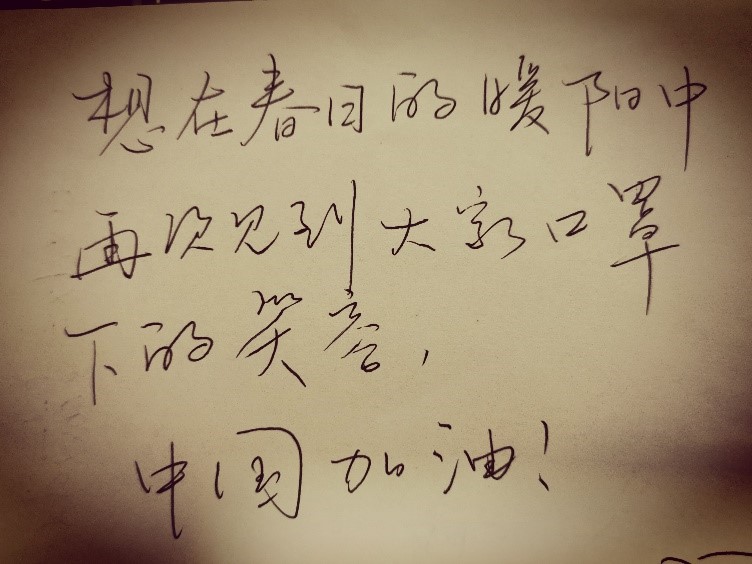 想在春日的暖阳中
再次见到大家口罩
下的笑容,
中国加油!